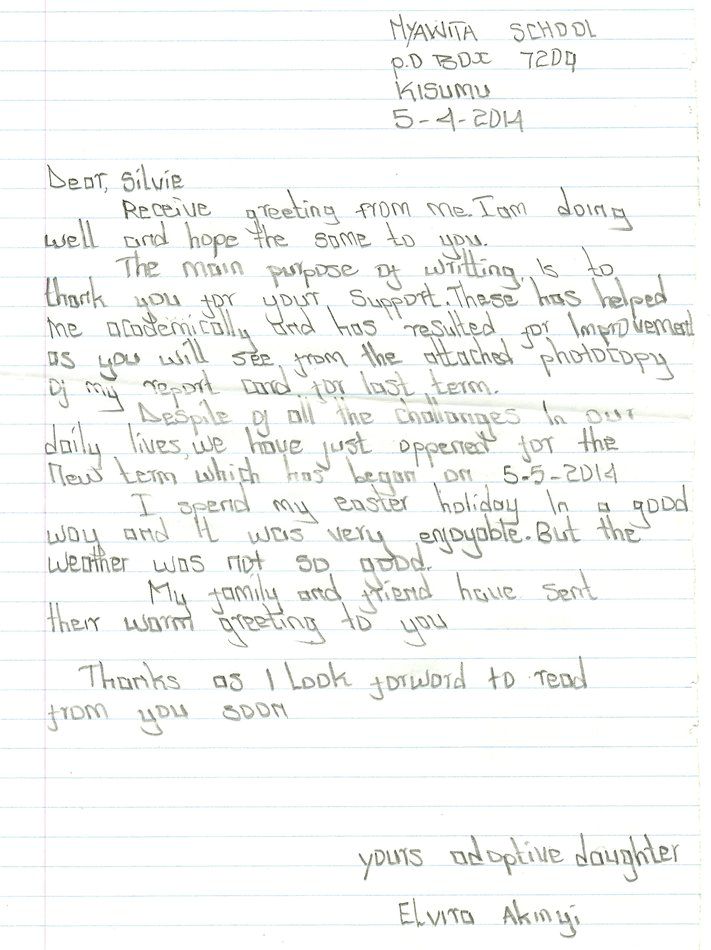 MYAWITA SCHOOL
P.O BOX 7209
KISUMU
5-4-2014
Dear, Silvie
Receive greeting from me. I am doing
well and hope the same to you.
The main purpose of writting, is to
thank you for your support. These has helped
me academically and has resulted for Improvement
as you will see from the attached photocopy
of my report card for last term.
Despite of all the challanges in our
daily lives, we have just oppened for the
New term which has began on 5-5-2014
I spend my easter holiday In a good
way and It was very enjoyable. But the
weather was not so good.
My family and friend have sent
their warm greeting to you
Thanks as I Look forward to read
from you soon
yours adoptive daughter
Elvita Akinyi